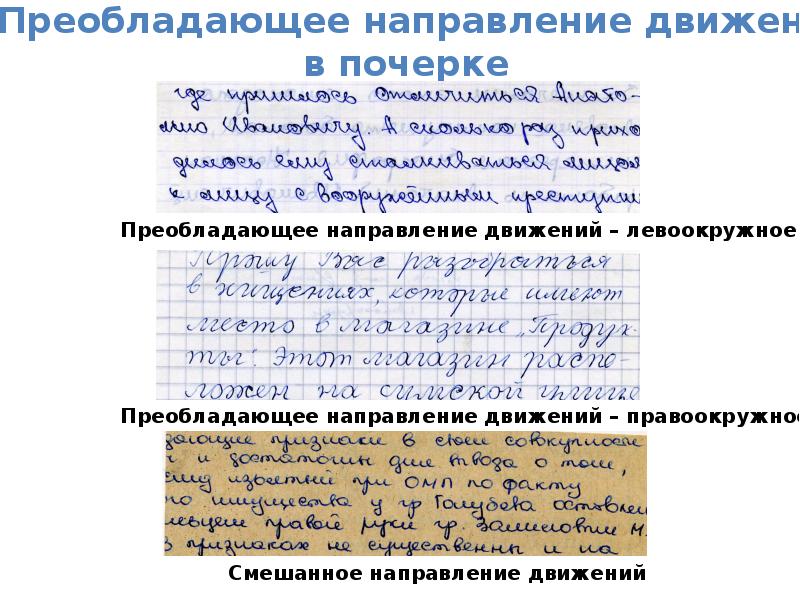 Преобладающее направление движен
в почерке
где пришлось отличиться Анато-
лию Ивановичу. А сколько раз прихо
дилось ему сталкиваться лицом
к лицу с вооружённым преступни
Преобладающее направление движений – левоокружное
Прошу Вас разобраться
в хищениях, которые имеют
место в магазине „Продук-
ты". Этот магазин распо-
ложен на симской улице
Преобладающее направление движений – правоокружно
дающие признаки в своей совокупности
и достаточны для вывода о том,
изъятый при ОМП по факту
го имущества у гр Голубева оставлен
пальцем правой руки гр. М.
В признаках не существенны и на
Смешанное направление движений